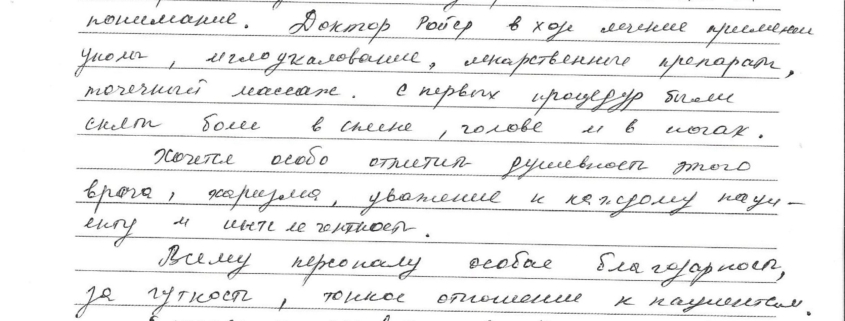 понимание. Доктор Ройер в ходе лечение применил
уколы, иглоукалование, лекарственные препараты,
точечный массаж. С первых процедур были
сняты боли в спине, голове и в ногах.
Хочется особо отметить душевность этого
врача, харизма, уважение к каждому паци-
енту и интелегентность.
Всему персоналу особая благодарность,
за чуткость, тонкое отношение к пациентам.